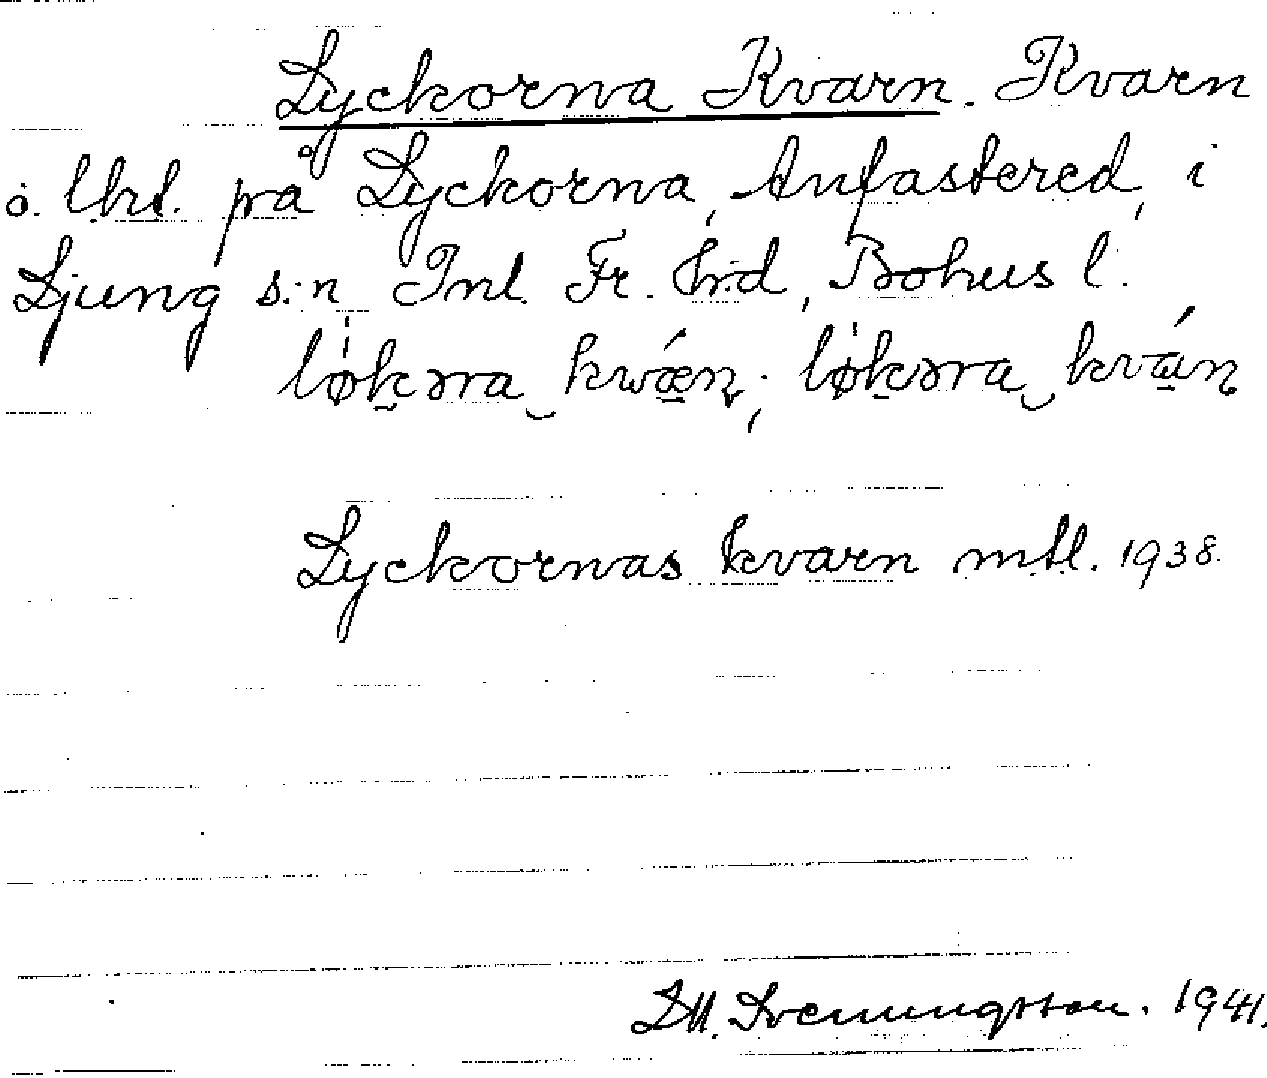 Lyckorna Kvarn. Kvarn
o. lht. på Lyckorna, Anfastered, i
Ljung s:n Inl. Fr. hrd, Bohus l.
løkɔrna kwæɳ; løkɔrna kváɳ
Lyckornas kvarn mtl. 1938.
Svenungsson. 1941.